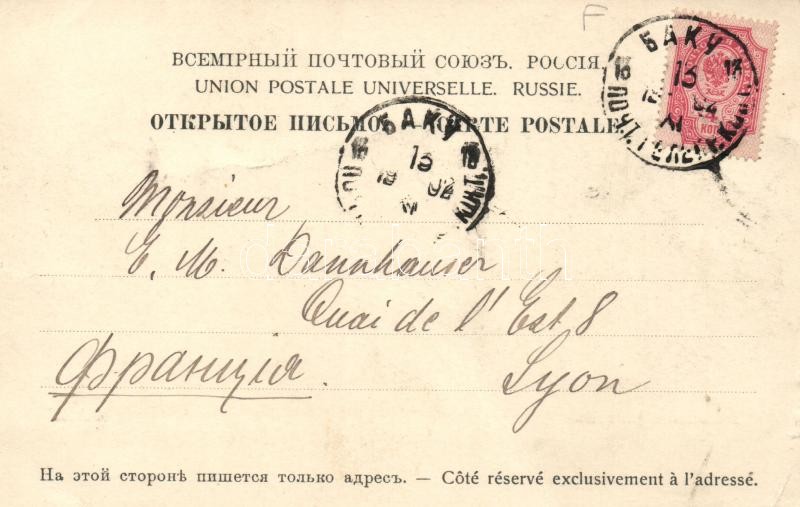 F
ВСЕМІРНЫЙ ПОЧТОВЫЙ СОЮЗЪ. РОССІЯ.
UNION POSTALE UNIVERSELLE. RUSSIE.
ОТКРЫТОЕ ПИСЬМО. — CARTE POSTALE.
БАКУ
13
БАКУ
13
Monsieur
E. M. Dannhauser
Quai de l'Est 8
Франція.
Lyon
На этой сторонѣ пишется только адресъ. — Côté réservé exclusivement à l'adressé.